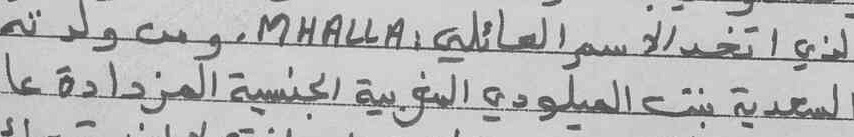 لذي اتخذ الاسم العائلي: MHALLA، ومن ولدته
السعدية بنت الميلودي المغربية الجنسية المزدادة عا